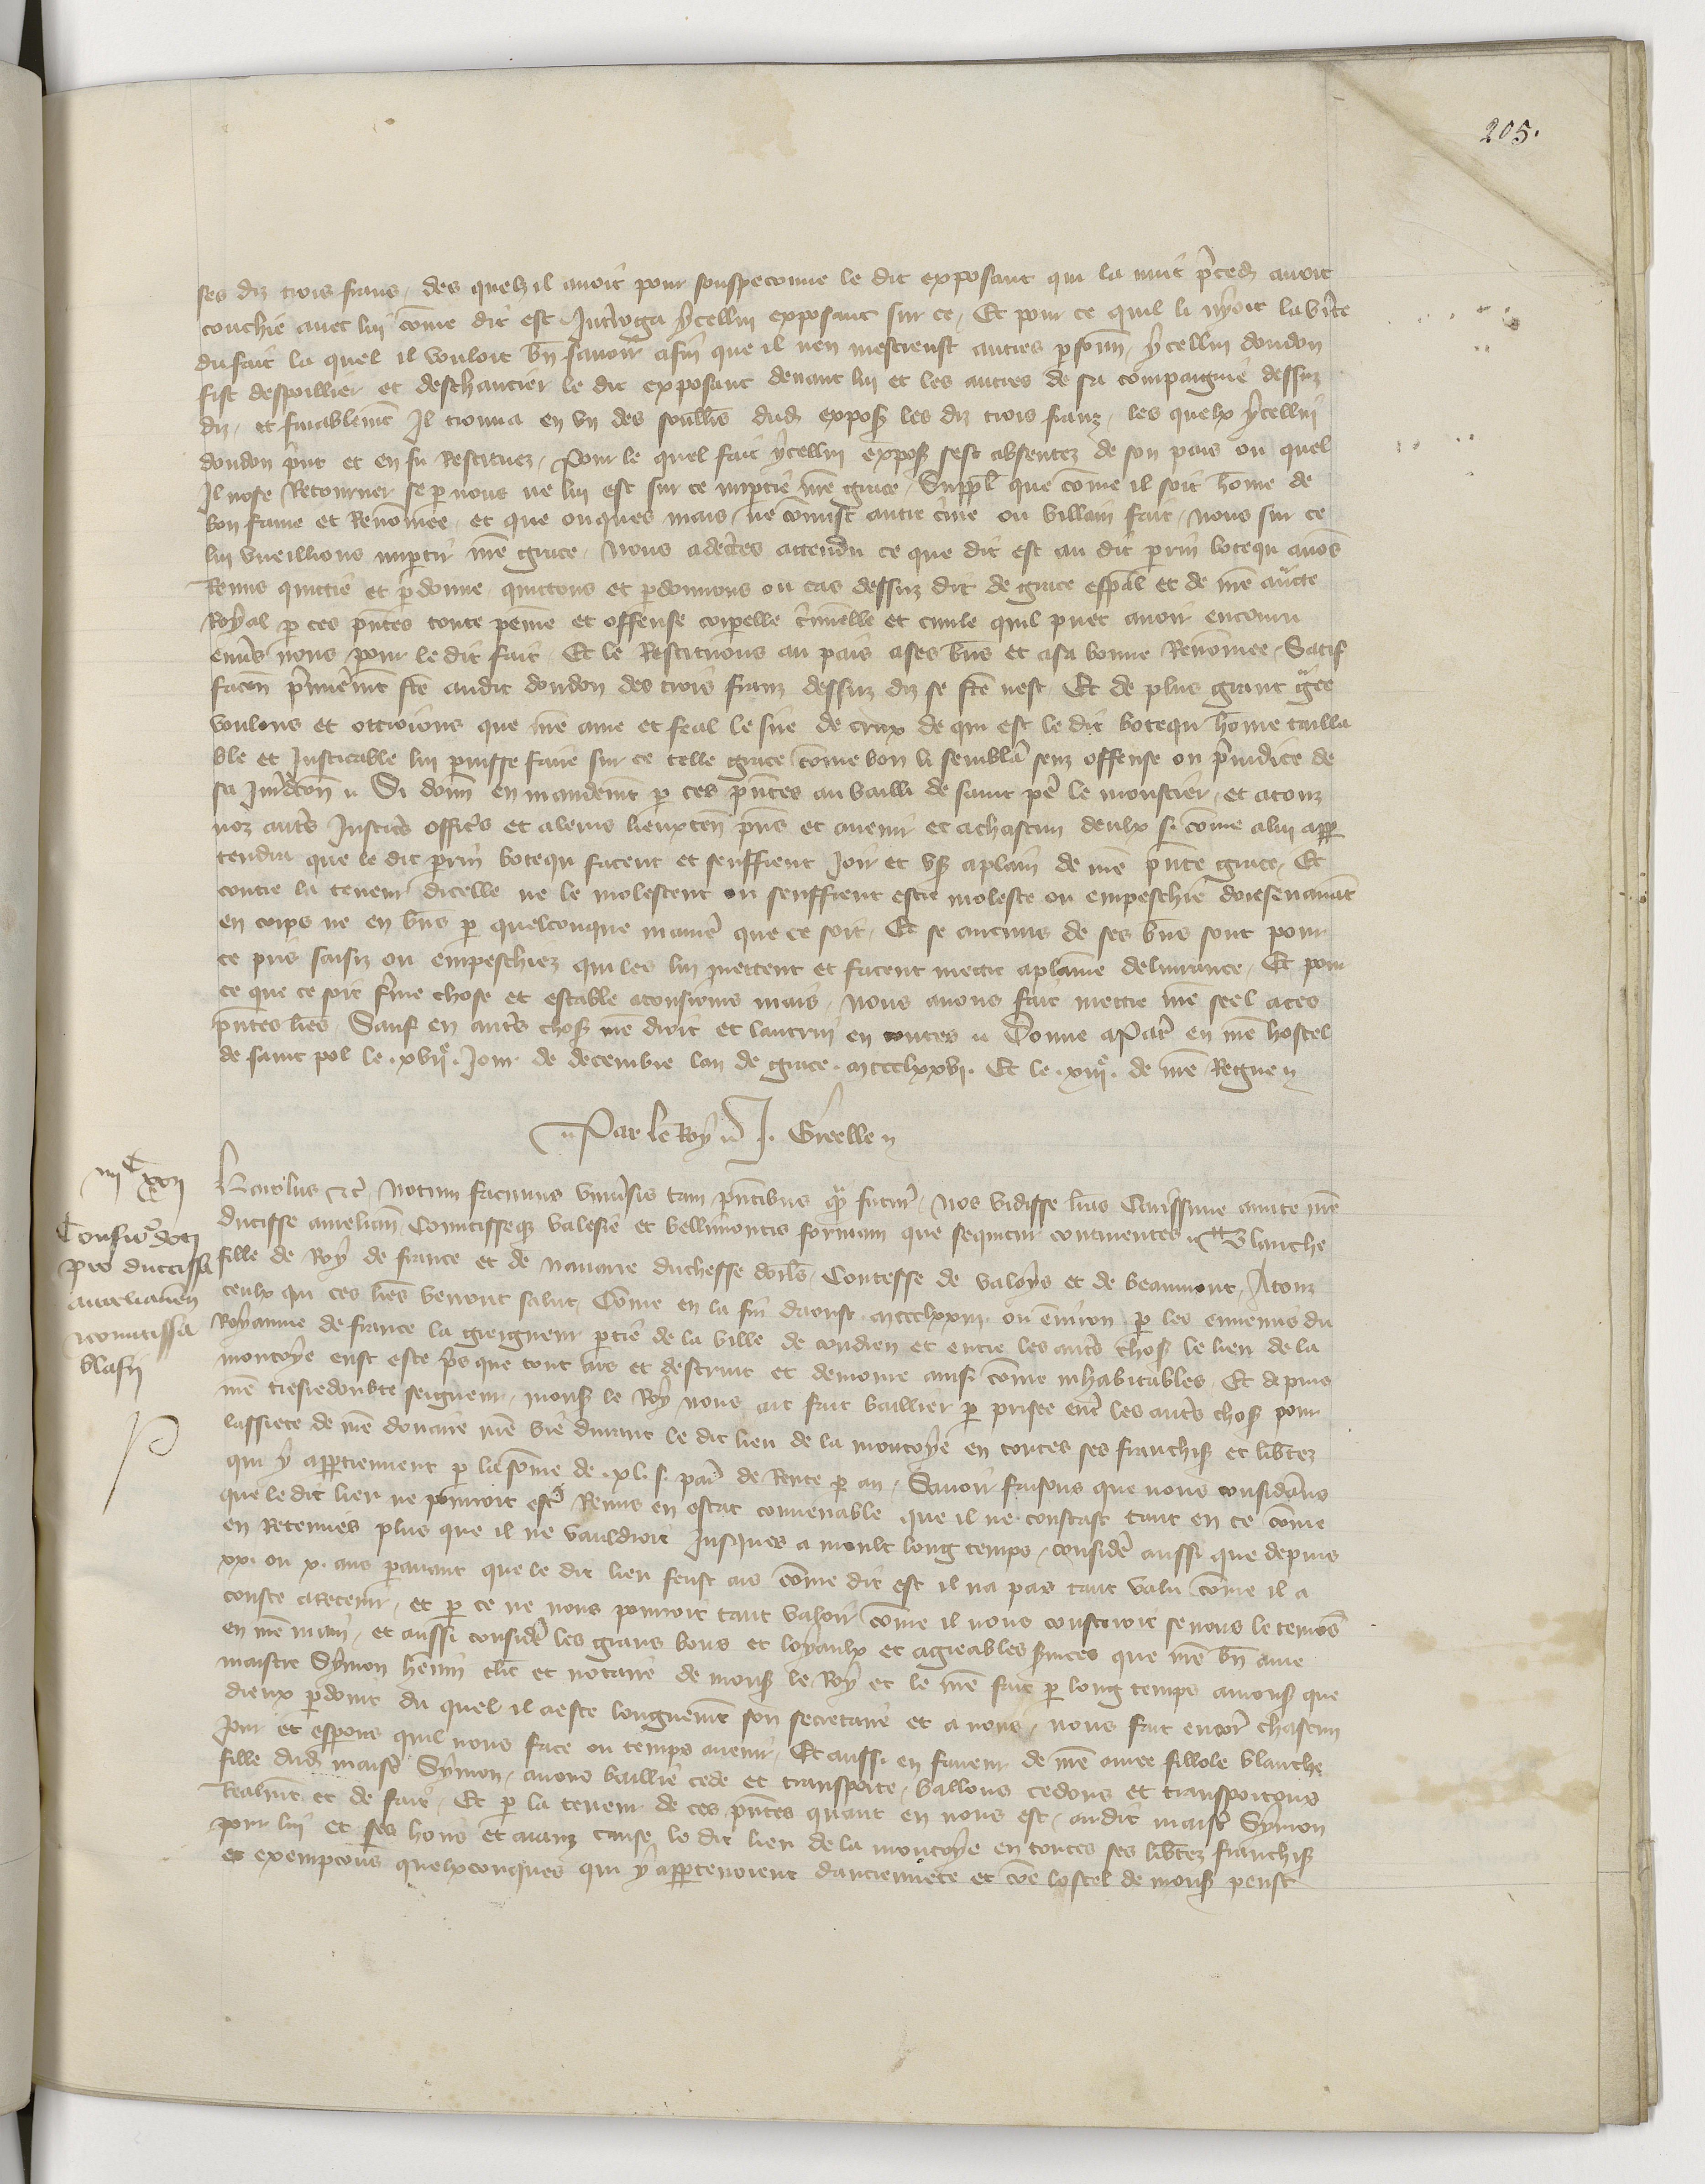 205.
ses diz trois frans, des quelz il avoit pour souspeconne le dit exposant qui la nuit p̃ced̃ avoit
couchie avec lui cõme dit est Int̃roga ycellui exposant sur ce, Et pour ce quil li nyoit la v̾ite
du fait la quel il vouloit bñ savoir afin que il nen mescreust autres p̱sonñ, ycellui doudon
fist despoillier et deschaucier le dit exposant devant lui et les autres de sa compaignie dessuz
diz, et finablem̃t Il trouva en un des soulliers dud̃ expos̃ les diz trois franz, les quelx ycellui
doudon print et en fu Restituez, Pour le quel fait ycellui expos̃ sest absentez de son pais ou quel
Il nose Retourner se p̱ nous ne lui est sur ce imp̱tie ñre grace, Suppl̃ que cõme il soit hõme de
bon fame et Renõmee, et que onques mais, ne cõmist autre c̾me ou villain fait, nous sur ce
lui vueillions imp̱tir ñre grace, Nous adec̃tes attendu ce que dit est au dit p̱rin botequ avõs
Remis quittie et p̱donne, quittons et p̱donnons ou cas dessuz dit de grace esp̃al et de ñre auc̃te
Royal p̱ ces p̃ntes toute peine et offense corporelle c̾minelle et civile quil puet avoir encouru
env̾s nous pour le dit fait, Et le Restituons au pais a ses biẽs et a sa bonne Renõmee, Satif
faccoñ p̃mierem̃t fc̃e audit doudon des trois franz dessuz diz se fc̃e nest, Et de plus grant g̃ce
voulons et ottroions que ñre ame et feal le sire de crux de qui est le dit botequ hõme tailla
ble et Justicable lui puisse faire sur ce telle grace cõme bon li semblera senz offense ou p̃iudice de
sa Juridc̃on, Si donñ en mandem̃t p̱ ces p̃ntes au bailli de saint p̃re le moustier, et a touz
noz autr̃s Justic̃s offic̃s et a leurs lieuxten̄ p̃ns et avenir et a chascun deulx si cõme a lui app̱
tendra que le dit p̱rin botequ facent et seuffrent Joir et us̃ a plain de ñre p̃nte grace, Et
contre la teneur dicelle ne le molestent ou seuffrent estre moleste ou empeschie doresenavãt
en corps ne en biẽs p̱ quelconque maniẽ que ce soit, Et se aucuns de ses biẽs sont pour
ce pris saisiz ou empeschiez qui les lui mettent et facent mettre a plaine delivrance, Et pour
ce que ce soit f̾me chose et estable a tousiours mais, Nous avons fait mettre ñre seel a ces
p̃ntes lr̃es, Sauf en autr̃s chos̃ ñre droit et lautrui en toutes, Donne a Par̃ en ñre hostel
de saint pol le .xviiᵉ. Jour de decembre lan de grace .mccclxxvi. Et le .xiiiᵉ. de ñre Regne
Par le Roy J. Greelle
iiijᶜ xvj
Confir̃o doñ
pro ducissa
aurelianeñ
comitissa
blasii
Karolus etc̃ Notum facimus univ̾sis tam p̃ntibus q̃ȝ futur̃, Nos vidisse lr̃as Carissime amice ñre
ducisse aureliañ, Comitisseqȝ Valesie et bellimontis formam que sequitur continentes, Blanche
fille de Roy de france et de navarre duchesse dorl̃s, Contesse de valoys et de beaumont, A touz
ceulx qui ces lr̃es verront salut, Cõme en la fin daoust .mccclxxiii. ou environ p̱ les ennemis du
Royaume de france la greigneur p̱tie de la ville de condren et entre les autr̃s chos̃ le lieu de la
montoye eust este p̃s que tout ars et destruit et demoure ainsi cõme inhabitables, Et depuis
ñre tresredoubte seigneur, mons̃ le Roy nous ait fait baillier p̱ prisee ent̃ les autr̃s chos̃ pour
lassiete de ñre douaire ñre vie durant le dit lieu de la montoye en toutes ses franchis̃ et lib̃tez
qui y app̱tiennent p̱ la sõme de .xl. s. par̃ de Rente p̱ an, Savoir faisons que nous considerãs
que le dit lieu ne pourroit est̃ Remis en estat convenable que il ne constast tant en ce cõme
en Retenues plus que il ne vauldroit Jusques a moult long temps, consider̃ aussi que depuis
xx. ou x. ans p̱avant que le dit lieu feust ars cõme dit est il na pas tant valu cõme il a
couste a Retenir, et p̱ ce ne nous pourroit tant valoir cõme il nous cousteroit se nous le teniõs
en ñre main, et aussi consider̃ les grans bons et loyaulx et agreables s̾vices que ñre bñ ame
maistre Symon hemin clerc et notaire de mons̃ le Roy et le ñre fait p̱ long temps a mons̃ que
dieux p̱doint du quel il a este longuem̃t son secretaire et a nous, nous fait encor̃ chascun
Jour et esperons quil nous face ou temps avenir, Et aussi en faveur de ñre amee fillole blanche
fille dud̃ maistr̃ Symon, avons baillie cede et transporte, ballons cedons et transportons
Realm̃t et de fait, Et p̱ la teneur de ces p̃ntes quant en nous est, audit maistr̃ Symon
pour lui et ses hoirs et aianz cause le dit lieu de la montoye en toutes ses lib̃tez franchis̃
et exempcions quelxconques qui y app̱tenoient danciennete et cõe lostel de mons̃ penst